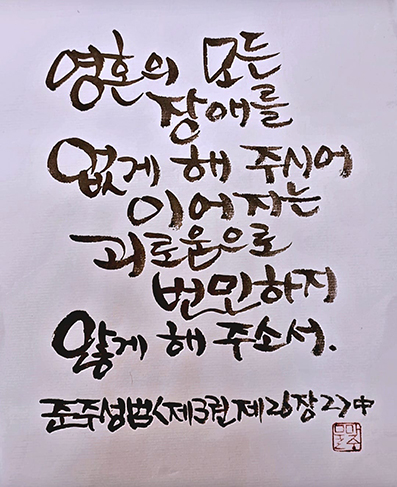 영혼의 모든
장애를
없게 해 주시어
이어지는
괴로움으로
번민하지
않게 해 주소서.
준주성범<제3권 제26장 2>中